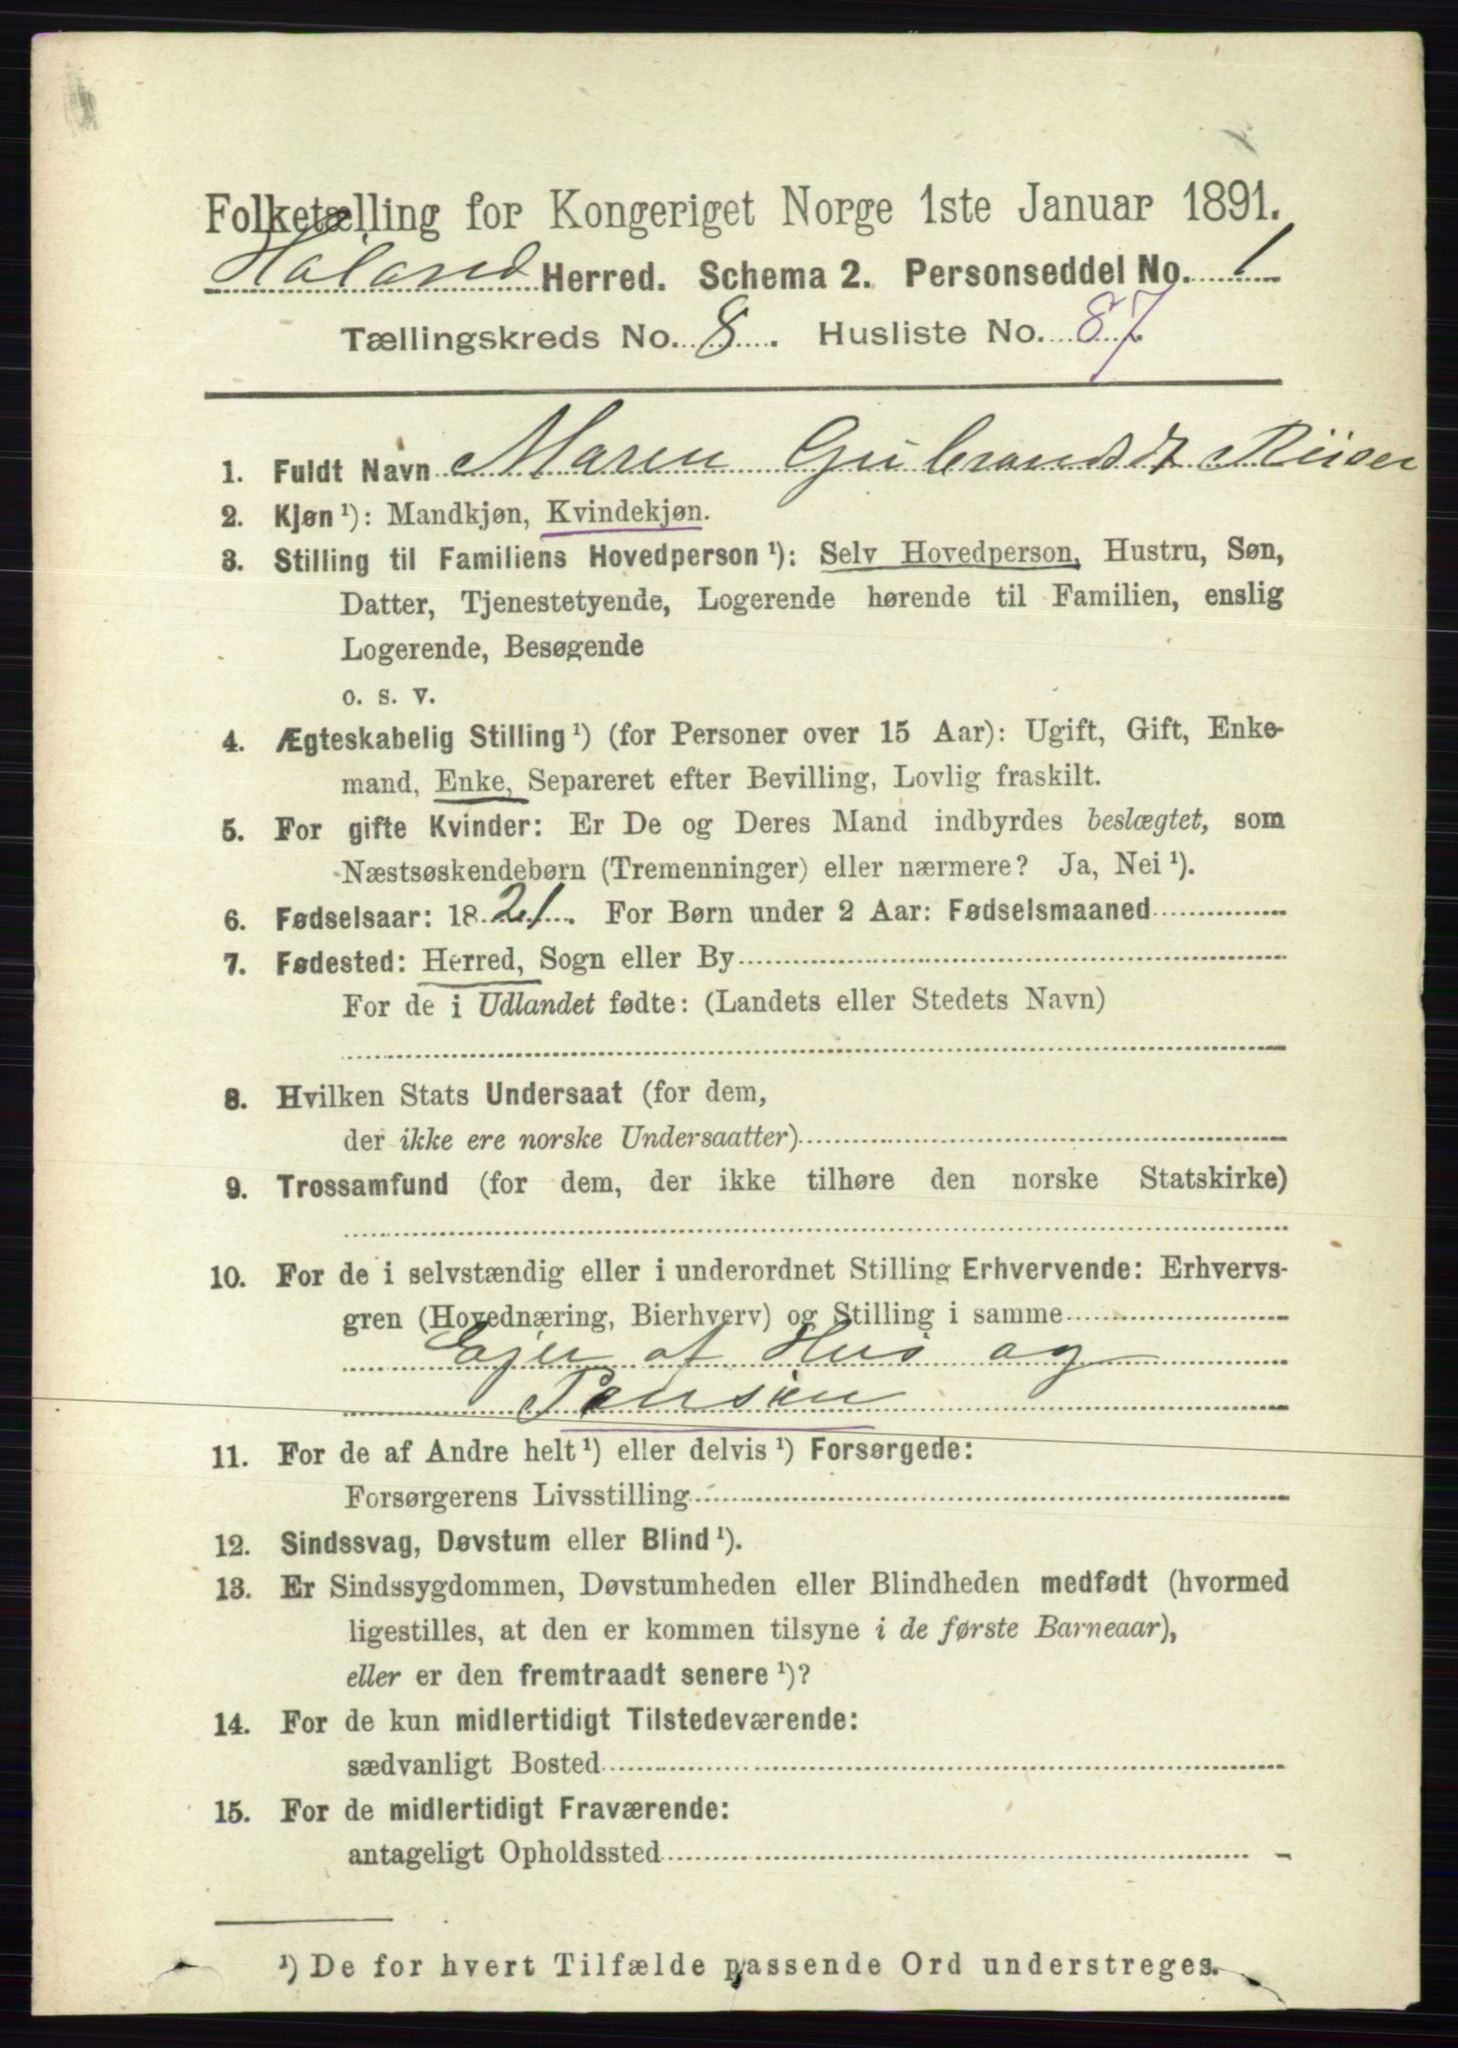 Folketælling for Kongeriget Norge 1ste Januar 1891.
Høland Herred. Schema 2. Personseddel No. 1
Tællingskreds No. 8. Husliste No. 87
1. Fuldt Navn Maren Gulbrandsdt Riiser
2. Kjøn ¹): Mandkjøn, Kvindekjøn.
3. Stilling til Familiens Hovedperson ¹): Selv Hovedperson, Hustru, Søn,
Datter, Tjenestetyende, Logerende hørende til Familien, enslig
Logerende, Besøgende
o. s. v.
4. Ægteskabelig Stilling ¹) (for Personer over 15 Aar): Ugift, Gift, Enke-
mand, Enke, Separeret efter Bevilling, Lovlig fraskilt.
5. For gifte Kvinder: Er De og Deres Mand indbyrdes beslægtet, som
Næstsøskendebørn (Tremenninger) eller nærmere? Ja, Nei ¹).
6. Fødselsaar: 1821. For Børn under 2 Aar: Fødselsmaaned
7. Fødested: Herred, Sogn eller By
For de i Udlandet fødte: (Landets eller Stedets Navn)
8. Hvilken Stats Undersaat (for dem,
der ikke ere norske Undersaatter)
9. Trossamfund (for dem, der ikke tilhøre den norske Statskirke)
10. For de i selvstændig eller i underordnet Stilling Erhvervende: Erhvervs-
gren (Hovednæring, Bierhverv) og Stilling i samme
Ejer af Hus og
Pension
11. For de af Andre helt ¹) eller delvis ¹) Forsørgede:
Forsørgerens Livsstilling
12. Sindssvag, Døvstum eller Blind ¹).
13. Er Sindssygdommen, Døvstumheden eller Blindheden medfødt (hvormed
ligestilles, at den er kommen tilsyne i de første Barneaar),
eller er den fremtraadt senere ¹)?
14. For de kun midlertidigt Tilstedeværende:
sædvanligt Bosted
15. For de midlertidigt Fraværende:
antageligt Opholdssted
¹) De for hvert Tilfælde passende Ord understreges.